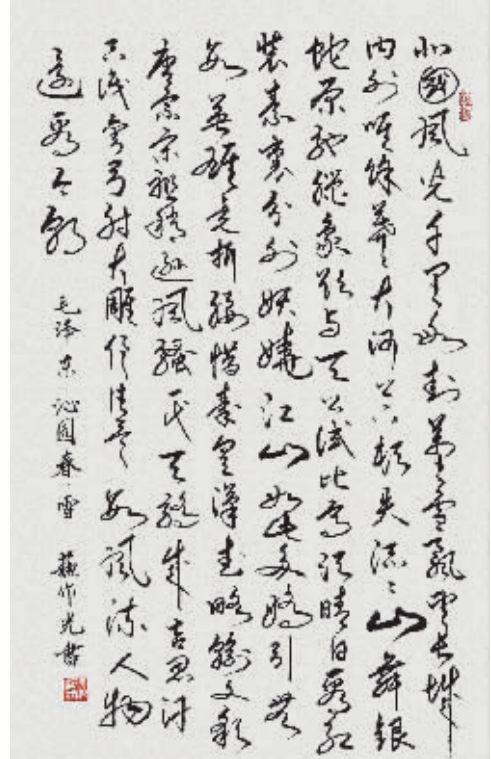 北國風光千里冰封萬里雪飄望长城
内外唯餘莽々大河上下頓失滔々山舞銀
蛇原馳臘象欲与天公試比高須晴日看紅
裝素裹分外妖嬈江山如此多嬌引無
數英雄競折腰惜秦皇漢武略輸文彩
唐宗宋祖稍遜風騷一代天驕成吉思汗
只識彎弓射大雕俱往矣數風流人物
還看今朝
毛泽东沁园春·雪 蘇作光書